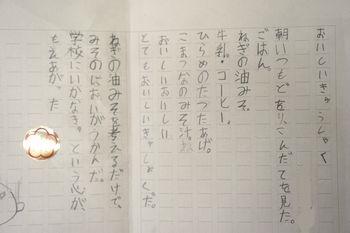 おいしいきゅうしょく
朝いつもどをり、こんだてを見た。
ごはん。
ねぎの油みそ。
牛乳・コーヒー。
ひらめのたつたあげ。
こまつなのみそ汁。
おいしいおいしい。
とてもおいしいきゅしょく。だ。
ねぎの油みそを考えるだけで、
みそのにおいがつかんだ。
学校にいかなき。という心が、
もえあがった